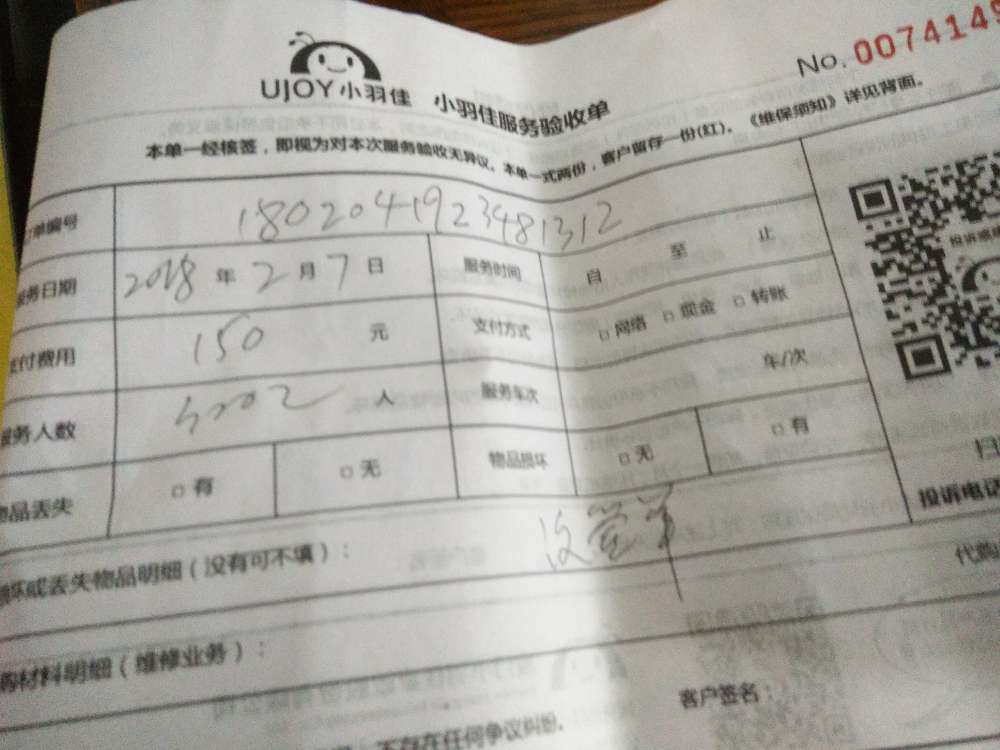 No. 0074149
UJOY小羽佳 小羽佳服务验收单
本单一经核签，即视为对本次服务验收无异议。本单一式两份，客户留存一份(红)。《维保须知》详见背面。
单编号 1802041923481312
务日期 2018 年 2 月 7 日 服务时间 自 至 止
付费用 150 元 支付方式 □ 网络 □ 现金 □ 转账
务人数 人 服务车次 车/次
品丢失 □ 有 □ 无 物品损坏 □ 无 □ 有
投诉电话
坏或丢失物品明细（没有可不填）：
代购
材料明细（维修业务）：
客户签名：
不存在任何争议纠纷。